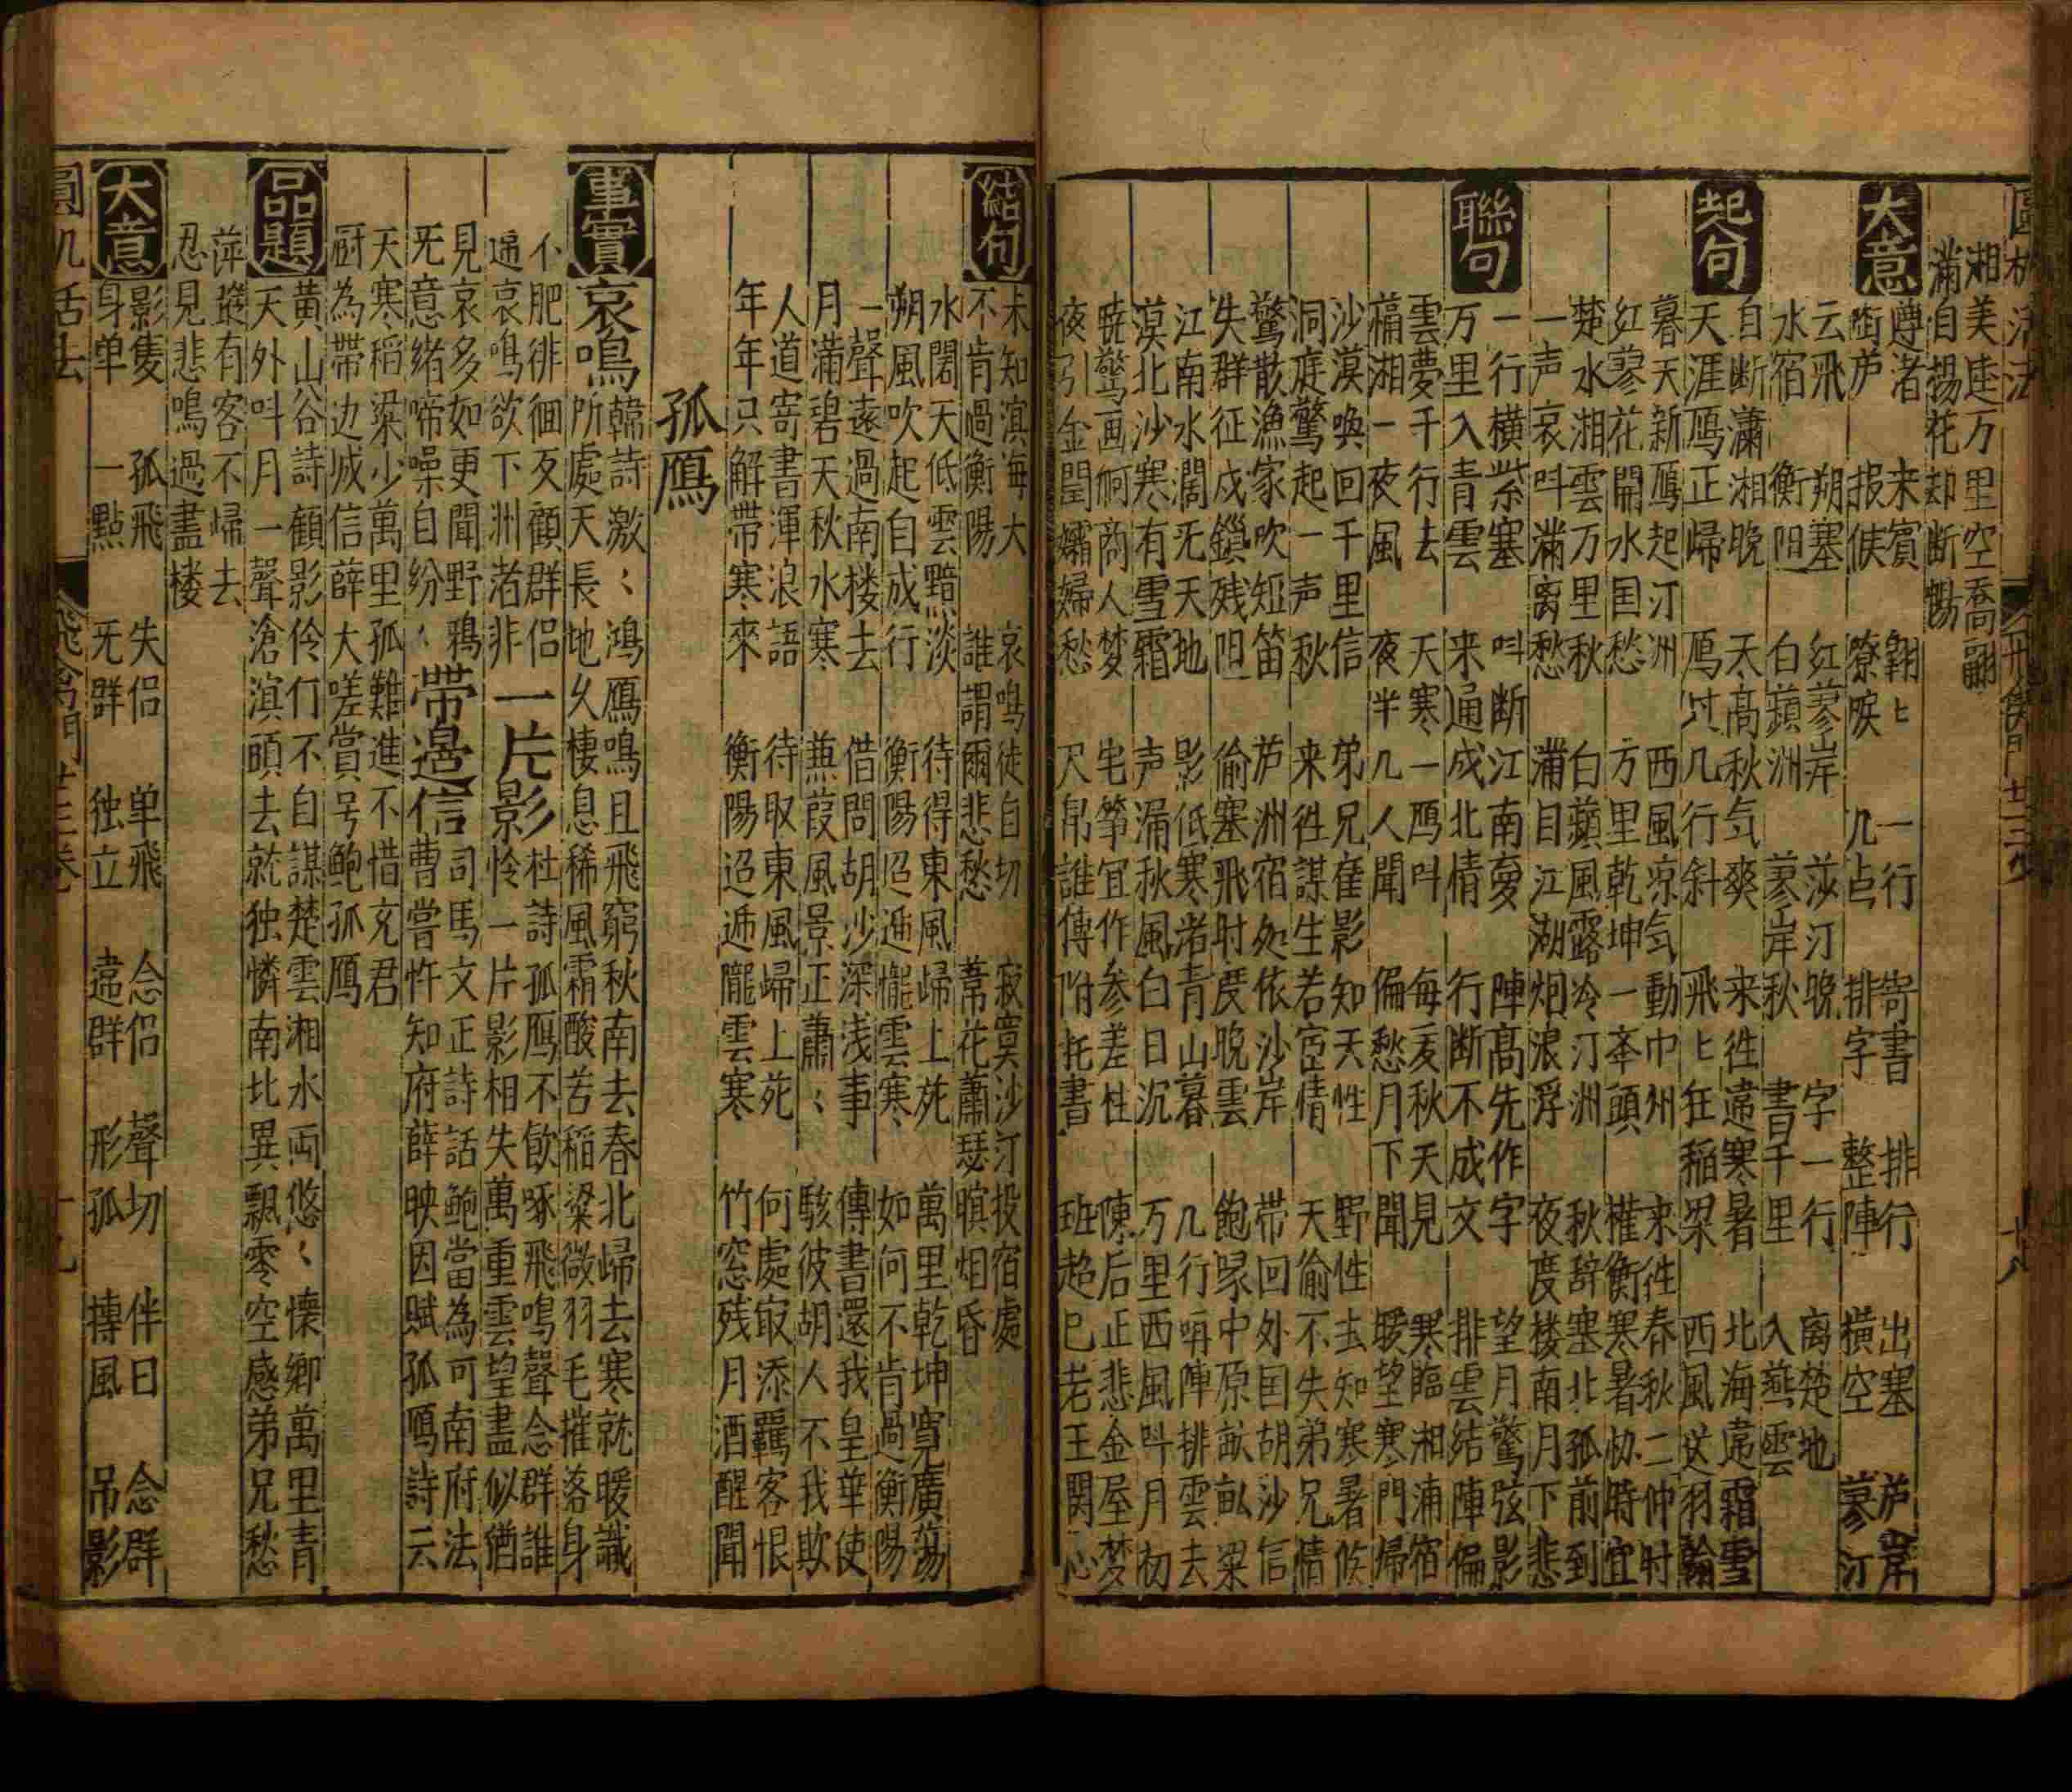 圓机活法 飛禽門廿三卷 十八
湘美逵万里空喬翮
滿自揚花却断膓
大意
遵渚 来賓 翱匕 一行 寄書 排行 出塞 芦岸
銜芦 报候 嘹唳 几点 排字 整陣 橫空 蓼汀
云飛 朔塞 红蓼岸 莎汀晚 字一行 离楚地
水宿 衡阳 白蘋洲 蓼岸秋 書千里 入燕雲
起句
自断瀟湘晚 天高秋气爽 来徃當寒暑 北海當霜雪
天涯鴈正歸 鴈过几行斜 飛匕狂稻粱 西風送羽翰
暮天新鴈起汀洲 西風凉气動中州 来徃春秋二仲时
红蓼花開水国愁 方里乾坤一夲頭 權衡寒暑協時宜
楚水湘雲万里秋 白蘋風露冷汀洲 秋辞塞北孤前到
一声哀叫滿离愁 滿目江湖烟浪浮 夜度楼南月下悲
聯句
一行橫紫塞 叫断江南夏 陣高先作字 望月驚弦影
万里入青雲 来通成北情 行断不成文 排雲結陣偏
雲夢千行去 天寒一鴈叫 每爰秋天見 寒臨湘浦宿
湘一夜風 夜半几人聞 偏愁月下聞 暖望寒門帰
沙漠喚回千里信 弟兄隹影知天性 野性去知寒暑候
洞庭驚起一声秋 来徃謀生若宦情 天偷不失弟兄情
驚散漁家吹短笛 芦洲宿処依沙岸 带回外国胡沙信
失群征戍鎖残阳 偷塞飛时度晚雲 飽啄中原畝畝粱
江南水濶无天地 影低寒渚青山暮 几行哨陣排雲去
漠北沙寒有雪霜 声漏秋風白日沉 万里西風叫月初
曉驚画舸商人梦 宅筝宜作参差柱 陳后正悲金屋梦
夜引金閨孀婦愁 尺帛誰傳附托書 班超已老王関心
結句
未知滇海大 哀鳴徒自切 寂寞沙汀投宿處
不肯過衡陽 誰謂爾悲愁 葦花蕭瑟暝烟昏
水闊天低雲黯淡 待得東風歸上苑 萬里乾坤寬廣蕩
朔風吹起自成行 衡陽迢逓隴雲寒 如何不肯過衡陽
一聲遠過南楼去 借問胡沙深浅事 傳書還我皇華使
月滿碧天秋水寒 蒹葭風景正蕭〻 駭彼胡人不我欺
人道寄書渾浪語 待取東風歸上苑 何處㝡添羈客恨
年年只解帶寒來 衡陽迢逓隴雲寒 竹窓残月酒醒聞
孤鴈
事實
哀鳴
韓詩激〻鴻鴈鳴且飛窮秋南去春北歸去寒就暖識
所處天長地久棲息稀風霜酸苦稲粱微羽毛摧落身
不肥徘徊反顧群侣
遍哀鳴欲下洲者非
一片影
杜詩孤鴈不飮啄飛鳴聲念群誰
怜一片影相失萬重雲望盡似猶
見哀多如更聞野鴉
旡意緒啼噪自紛〻
帶邊信
司馬文正詩話鮑當為可南府法
曹嘗忤知府薛映因賦孤鴈詩云
天寒稻粱少萬里孤難進不惜充君
厨為帶边城信薛大嗟賞号鮑孤鴈
品題
黃山谷詩顧影伶仃不自謀楚雲湘水両悠〻懐鄉萬里青
天外呌月一聲滄溟頭去就独憐南北異飄零空感弟兄愁
萍蹤有客不歸去
忍見悲鳴過盡楼
大意
影隻 孤飛 失侣 单飛 念侣 聲切 伴日 念群
身单 一點 旡群 独立 違群 形孤 摶風 吊影
圓机活法 飛禽門廿三卷 十九